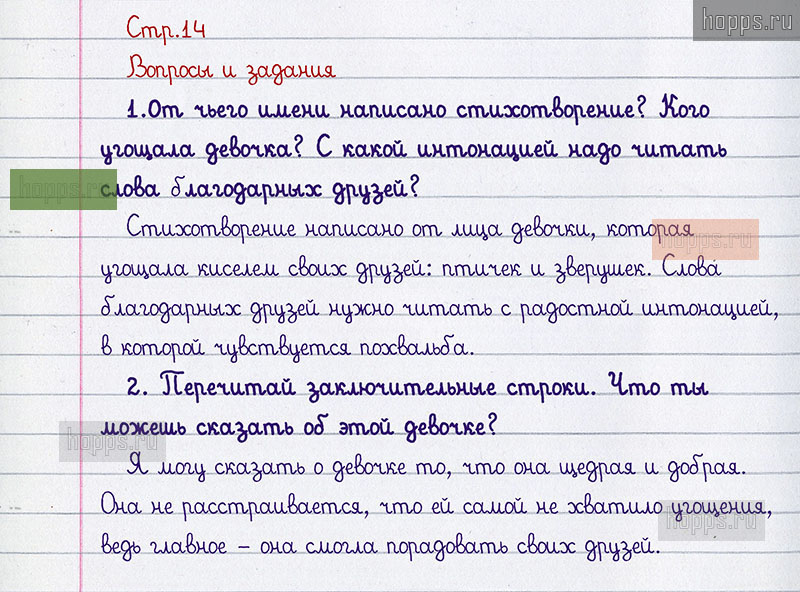 hopps.ru
Стр.14
Вопросы и задания
1.От чьего имени написано стихотворение? Кого
угощала девочка? С какой интонацией надо читать
hopps.ru
слова благодарных друзей?
Стихотворение написано от лица девочки, которая
hopps.ru
угощала киселем своих друзей: птичек и зверушек. Слова́
благодарных друзей нужно читать с радостной интонацией,
в которой чувствуется похвальба.
2. Перечитай заключительные строки. Что ты
можешь сказать об этой девочке?
hopps.ru
Я могу сказать о девочке то, что она щедрая и добрая.
Она не расстраивается, что ей самой не хватило угощения,
hopps.ru
ведь главное – она смогла порадовать своих друзей.